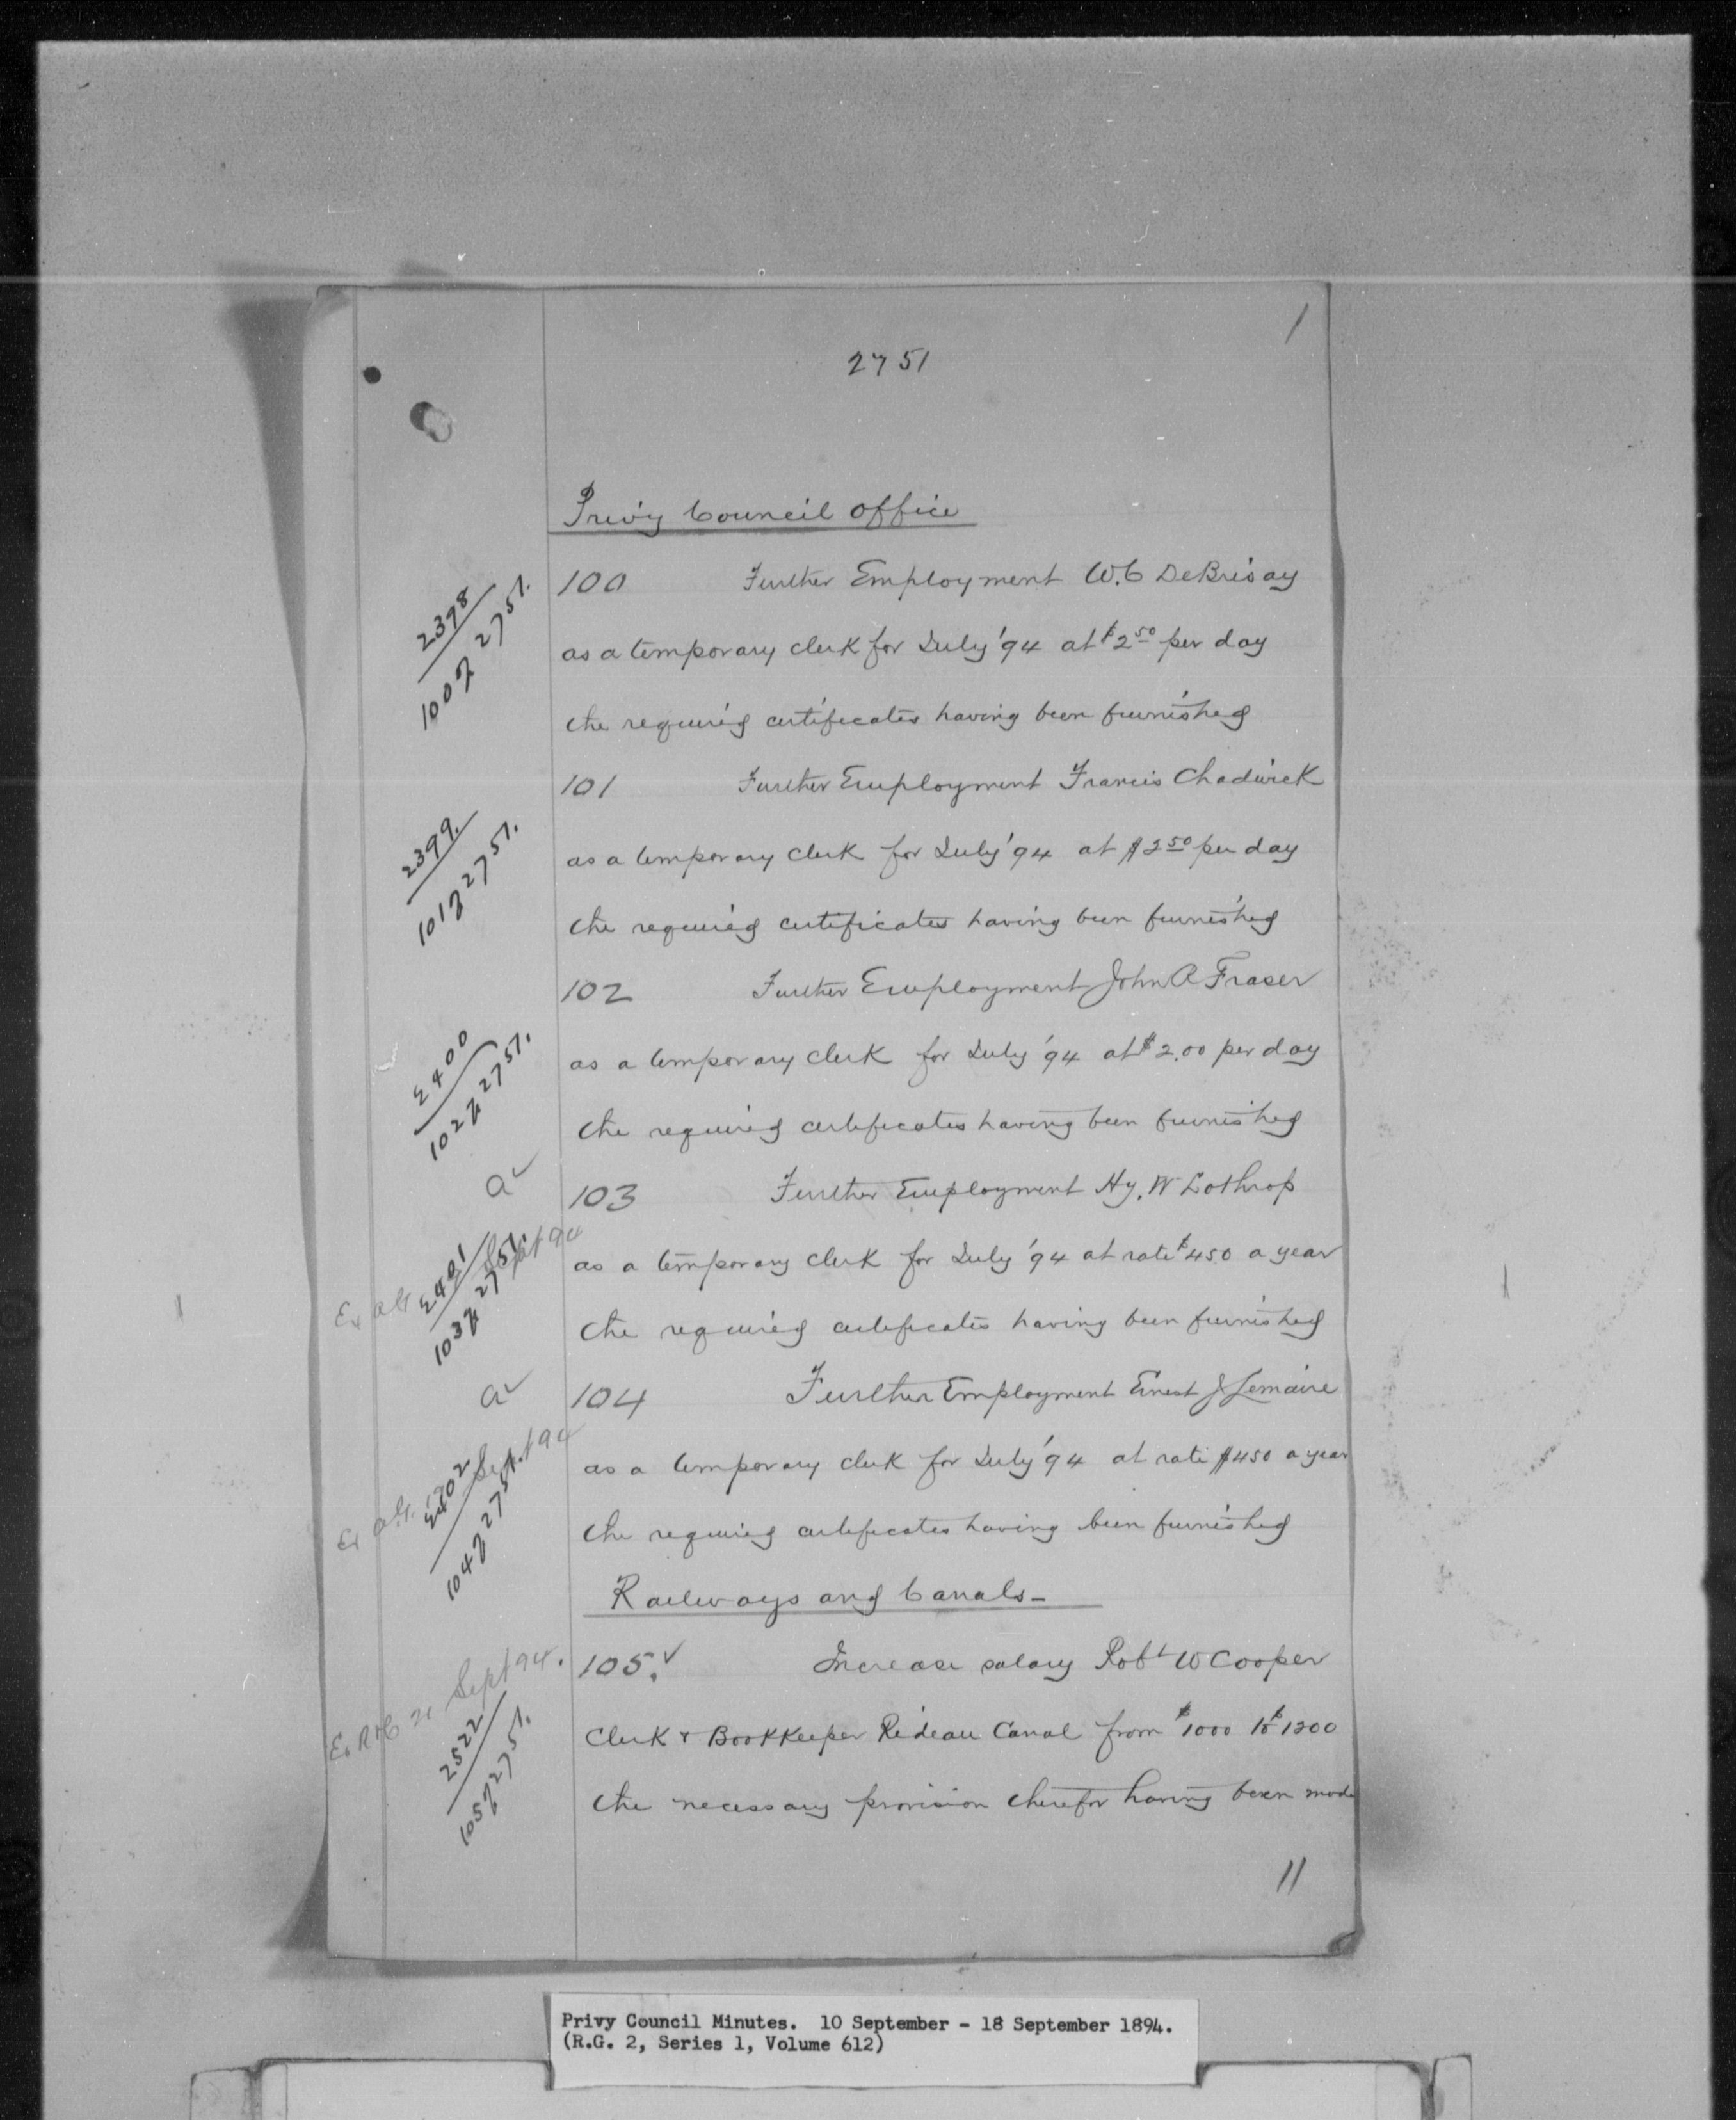 1
2751
Privy Council Office
2398
100 of 2751.
100 Further Employment W.C DeBrisay
as a temporary clerk for July '94 at $2 50 per day
the required certificates having been furnished
2399.
101 of 2751.
101 Further Employment Francis Chadwick
as a temporary clerk for July '94 at $2 50 per day
the required certificates having been furnished
2400
102 of 2751.
102 Further Employment John A Fraser
as a temporary clerk for July '94 at $2.00 per day
the required certificates having been furnished
2401
103 of 2751.
Sept 94
103 Further Employment Hy. W Lothrop
as a temporary clerk for July '94 at rate $450 a year
the required certificates having been furnished
2402
104 of 2751.
Sept. 94
104 Further Employment Ernest J Lemaire
as a temporary clerk for July '94 at rate $450 a year
the required certificates having been furnished
Railways and Canals-
Sept 94.
2522
105 of 2751.
105. Increase salary Robt W Cooper
Clerk & Bookkeeper Rideau Canal from $1000 to $1200
the necessary provision therefor having been made
11
Privy Council Minutes. 10 September - 18 September 1894.
(R.G. 2, Series 1, Volume 612)